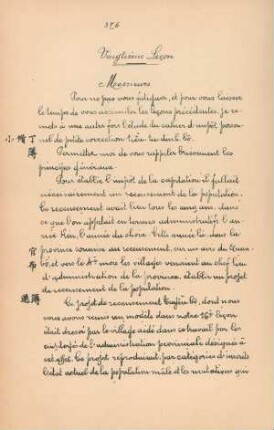 326
Vingtième Leçon
Messieurs
Pour ne pas vous fatiguer, et pour vous laisser
le temps de vous assimiler les leçons précédentes, je re-
mets à une autre fois l'étude du cahier d'impôt person-
nel de petite correction tiểu tu đinh bộ.
Permettez moi de vous rappeler brièvement les
principes généraux.
Pour établir l'impôt de la capitation il fallait
nécessairement un recensement de la population.
Ce recensement avait lieu tous les cinq ans, dans
ce que l'on appelait en termes administratifs l'an-
née de l'année du choix. Cette année là, dans la
province soumise au recensement, sur un avis du Quan
bố, et vers le 4e mois les villages venaient au chef lieu
d'administration de la province, établir un projet
de recensement de la population.
Ce projet de recensement, dont nous
vous avons remis un modèle dans notre 16e leçon
était dressé par le village aidé dans ce travail par les
employés de l'administration provinciale désignés à
cet effet. Ce projet reproduisait par catégories d'inscrits
l'état actuel de la population mâle et les mutations qui
小修丁簿
官布
簿